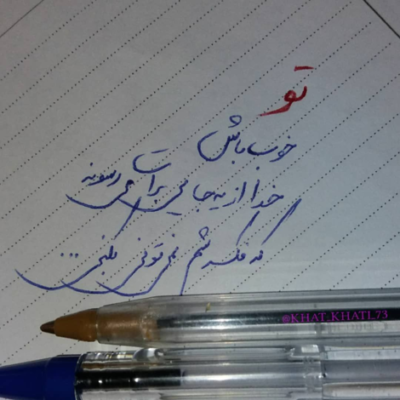 تو
خوب باش
خدا از یه جایی برات می رسونه
که فکرشم نمی تونی بکنی...
@KHAT-KHATL73